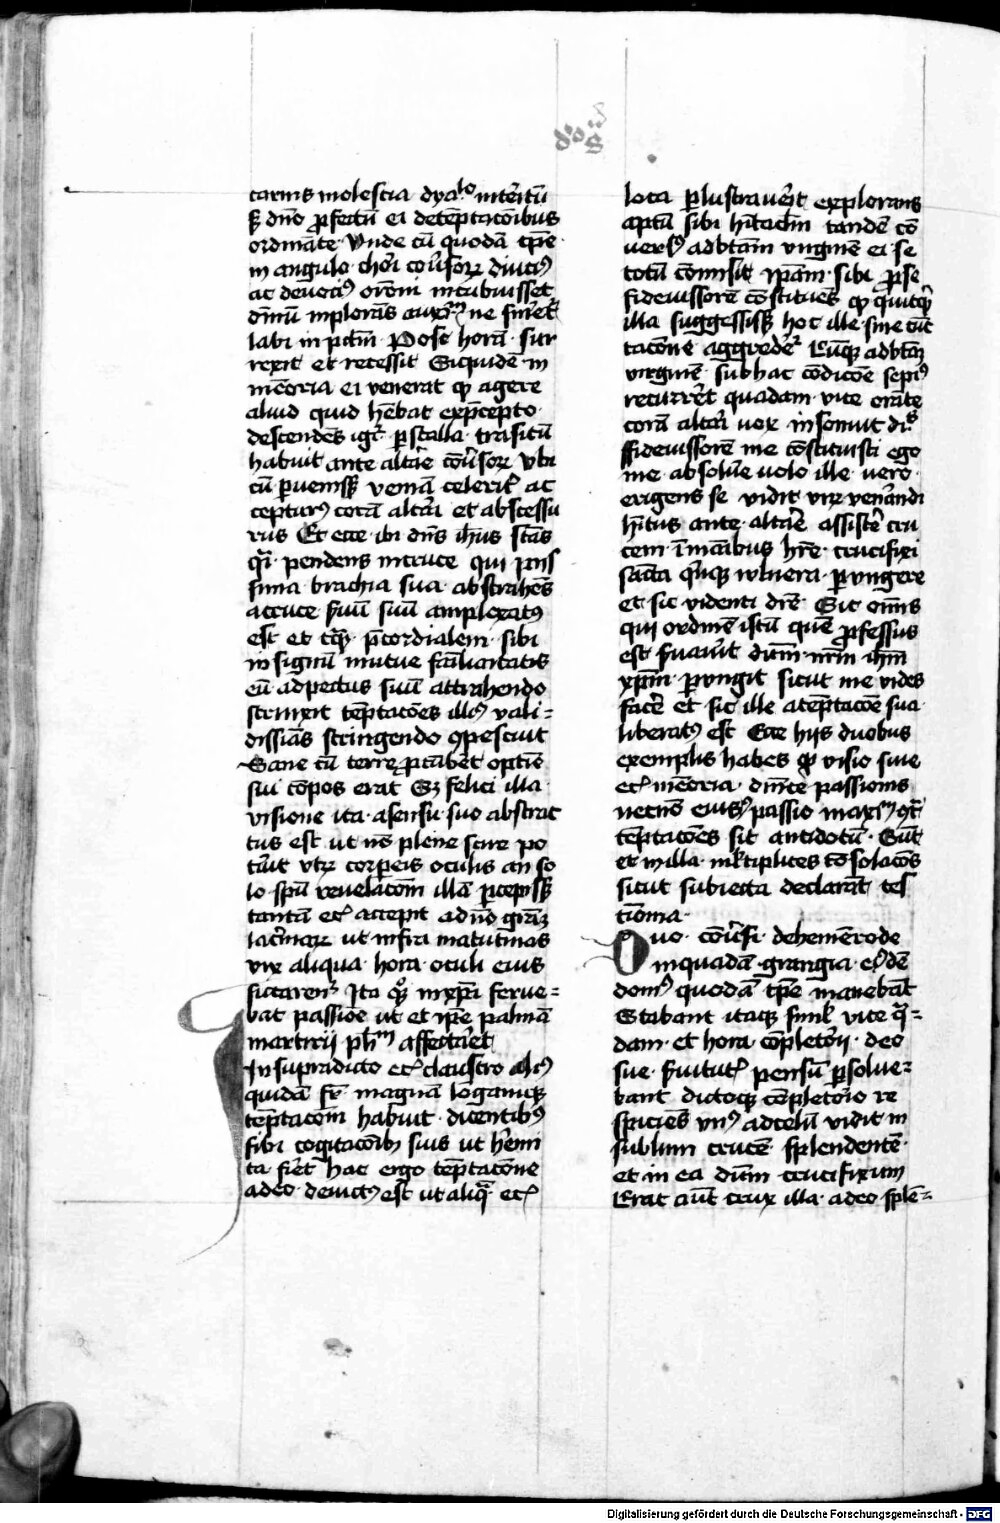 carnis molestia dyalo interitū
s; dn̄o ꝓfectū ei de tēptacōibus
ordināte Vnde cū quodā tp̄e
in angulo chori cōuersoꝝ diuciꝰ
ac deuociꝰ orōm incubuisset
dn̄m inplorās ne sineret
labi in pctm̄ Post horā sur
rexit et recessit Siquidē in
memoria ei venerat ꝙ agere
aliud quid hēbat ex p̄cepto
descendēs igr̄ ꝑ stalla trāsitū
habuit ante altare cōuersoꝝ vbi
cū ꝑuenissꝫ veniā celeriter ac
cepturꝰ corā altari et abscessu
rus Et ecce ibi dn̄s ih̄us stās
qͣi pendens in cruce qui
brachia sua abstrahēs
a cruce suū amplexatꝰ
est et p̄cordialem sibi
in signū mutue familiaritatis
eū ad pectus suū attrahendo
strinxit tēptacōes illiꝰ vali-
dissias stringendo ꝯpescuit
Sane cū terre ꝓcūbēt optiē
sui cōpos erat Sꝫ felici illa
visione ita a sensu suo abstrac
tus est ut nō plene scire po
tuit vtꝝ corꝑeis oculis an so
lo spū reuelacōm illā ꝑcepissꝫ
tantā etc̄ accepit ad n̄d grāꝫ
lacrīarꝝ ut infra matutinas
vix aliqua hora oculi eius
siccarent Ita in xp̄i ferue-
bat passiōe ut et ip̄e palmā
martirij affectaret
In supradicto etc̄ claustro aliꝰ
quidā fr̄ magnā longamꝗꝫ
tēptacōm habuit dicentibꝰ
sibi cogitacōibꝫ suis ut heremi
ta fieret hac ergo tēptacōne
adeo deuictꝰ est ut aliqͣ etc̄
loca ꝑlustrauerit explorans
aptū sibi hītaclm̄ tandē cō
uersꝰ ad btām virginē ei se
totū cōmisit ip̄am sibi ꝓ se
fideiussorē cōstituēs ꝙ quitqͥd
illa suggessissꝫ hoc ille sine cūc
tacōne aggrederetur Cūꝗꝫ ad btāꝫ
virginē sub hac cōdicōe sepiꝰ
recurreret quadam vice orāte
corā altari vox insonuit
Fideiussorē me cōstituisti ego
me absoluere uolo ille vero
erigens se vidit virꝝ venerandi
hītus ante altare assistere cru
cem in manibus hr̄e crucifixi
sancta quinꝗꝫ wlnera ꝑungere
et sic videnti dr̄e Sic om̄s
qui ordinē istū quē ꝓfessus
est seruauerit dn̄m nr̄m ih̄m
xp̄m ꝑungit sicut me vides
facere et sic ille a tēptacōe sua
liberatꝰ est Ecce hijs duobus
exemplis habes ꝙ visio siue
etc̄ memoria dnīce passionis
necnō passio maxīe ꝯtͣ
tēptacōes sit antidotū Sūt
et in illa mltiplices cōsolacōes
sicut subiecta declarāt tes
timonia
Duo cōuersi de hemenrode
in quadā grangia eiꝰdē
domꝰ quodā tp̄e manebāt
Stabant itaꝗꝫ siml vice qͣ-
dam et hora cōpletorij deo
sue seruitutis pensū ꝑsolue-
bant dictoꝗꝫ cōpletorio re
spiciēs vnꝰ ad celū vidit in
sublimi crucē splendentē
et in ea dn̄m crucifixum
Erat aūt crux illa adeo splē-
Digitalisierung gefördert durch die Deutsche Forschungsgemeinschaft - DFG